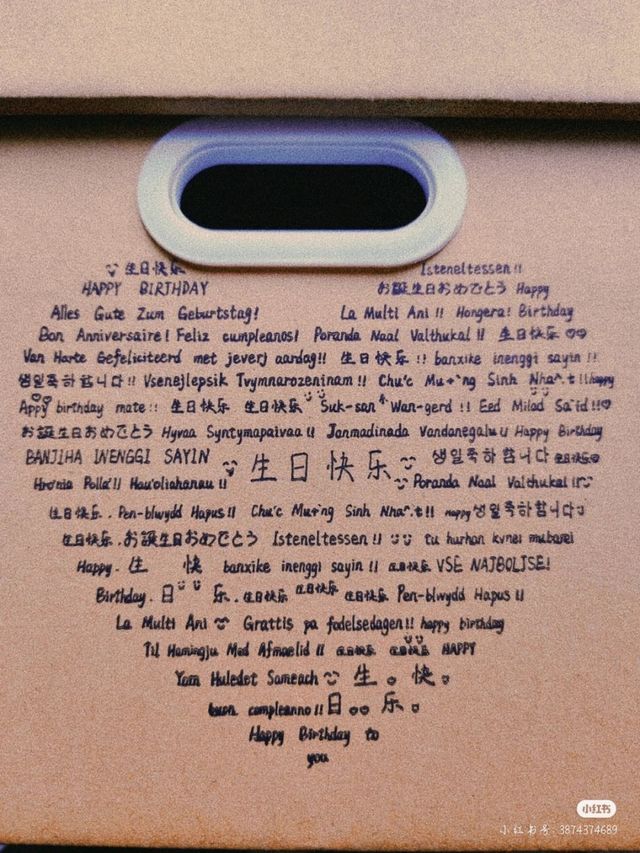 生日快乐 Isteneltessen!!
HAPPY BIRTHDAY お誕生日おめでとう Happy
Alles Gute Zum Geburtstag! La Multi Ani !! Hongera! Birthday
Bon Anniversaire! Feliz cumpleanos! Poranda Naal Valthukal !! 生日快乐
Van Harte Gefeliciteerd met jeverj aardag!! 生日快乐 !! banxike inenggi sayin !!
생일축하합니다!! Vsenejlepsik Tvymnarozeninam !! Chu'c Mu+'ng Sinh Nha^.t !! happy
Appy birthday mate !! 生日快乐 生日快乐 Suk-san Wan-gerd !! Eed Milad Sa'id !!
お誕生日おめでとう Hyvaa Syntymapaivaa !! Janmadinada Vandanegalu !! Happy Birthday
BANJIHA INENGGI SAYIN 生日快乐 생일축하합니다 生日快乐
Hronia Polla'!! Hau'oliahanau !! Poranda Naal Valthukal !!
生日快乐. Pen-blwydd Hapus !! Chu'c Mu+'ng Sinh Nha^.t !! happy 생일축하합니다
生日快乐. お誕生日おめでとう Isteneltessen !! tu hurhan kvnei mubarel
Happy. 生 快 banxike inenggi sayin !! 生日快乐 VSE NAJBOLJSE!
Birthday. 日 乐. 生日快乐 生日快乐 生日快乐 Pen-blwydd Hapus !!
La Multi Ani Grattis pa fodelsedagen!! happy birthday
Til Hamingju Med Afmaelid !! 生日快乐 生日快乐 HAPPY
Yom Huledet Sameach 生。快。
buon compleanno !! 日 乐。
Happy Birthday to
you
小红书
小红书号 3874374689